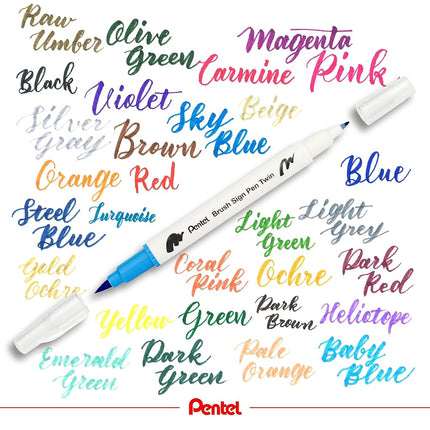 Raw
Umber
Olive
Green
Magenta
Carmine
Pink
Black
Violet
Sky
Blue
Beige
Silver
Gray
Brown
Orange
Red
Blue
Steel
Blue
Turquoise
Pentel Brush Sign Pen Twin
Light
Green
Light
Grey
Gold
Ochre
Coral
Pink
Ochre
Dark
Red
Yellow
Green
Dark
Brown
Heliotope
Emerald
Green
Dark
Green
Pale
Orange
Baby
Blue
Pentel